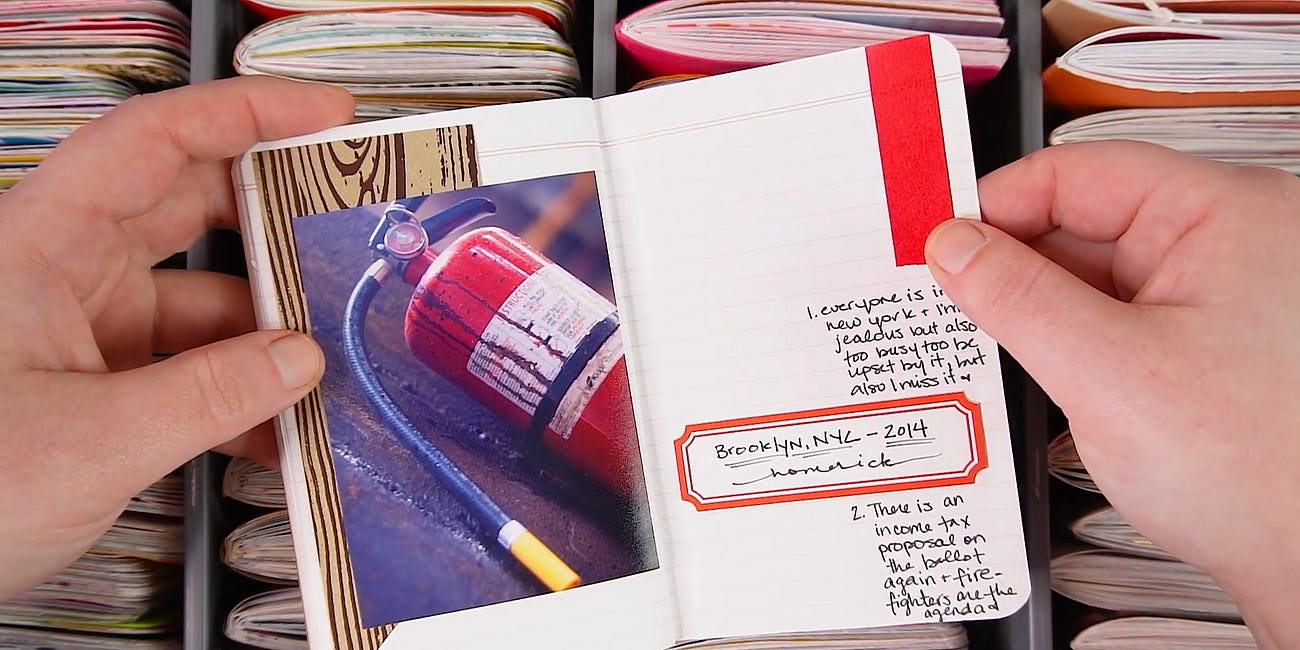 STRUCTIO
1. everyone is in
new york + I'm
jealous but also
too busy too be
upset by it, but
also I miss it
Brooklyn, NYC – 2014
homesick
2. There is an
income tax
proposal on
the ballot
again + fire-
fighters are the
agenda